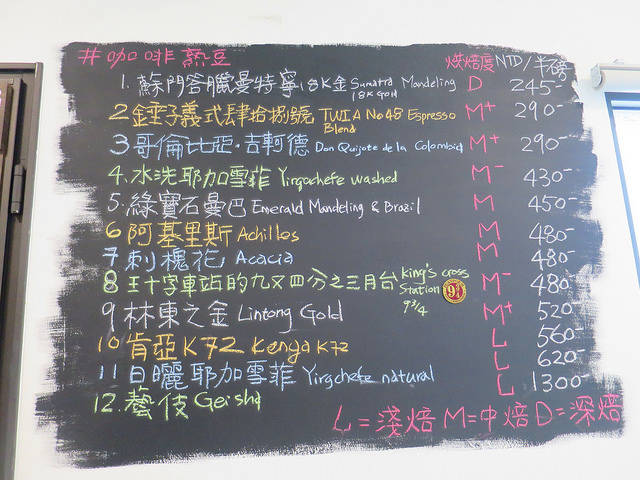 #咖啡熟豆 烘焙度 NTD/半磅
1. 蘇門答臘曼特寧18K金 Sumatra Mandeling 18K Gold D 245-
2 金埵子義式肆拾捌號 TWIA No48 Espresso Blend M+ 290-
3 哥倫比亞·吉軻德 Don Quijote de la Colombia M+ 290-
4. 水洗耶加雪菲 Yirgachefe washed M- 430-
5. 綠寶石曼巴 Emerald Mandeling & Brazil M 450-
6 阿基里斯 Achilles M 480-
7 刺槐花 Acacia M 480-
8 王十字車站的九又四分之三月台 King's cross Station 9 3/4 M- 480-
9 林東之金 Lintong Gold M+ 520-
10 肯亞K72 Kenya K72 L 560-
11 日曬耶加雪菲 Yirgchefe natural L 620-
12. 藝伎 Geisha L 1300-
L=淺焙 M=中焙 D=深焙